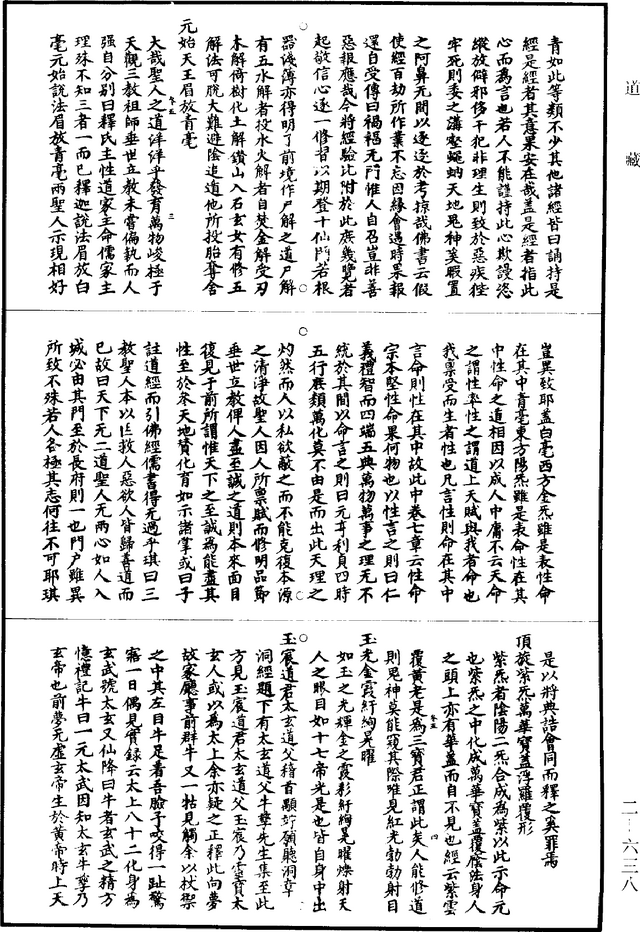 道藏
青如此等類不少其他諸經皆曰誦持是
經是經者其意果安在哉蓋是經者指此
心而為言也若人不能謹持此心欺謾恣
縱放僻邪侈干犯非理生則致於惡疾徃
牢死則委之溝壑蠅蚋天地鬼神奚暇置
之阿鼻无間以逐逐於考掠哉佛書云假
使經百劫所作業不忘因緣會遇時果報
還自受傳曰禍福无門惟人自召豈非善
惡報應哉今將經驗比附於此庶幾覽者
起敬信心逐一修習以期登十仙門若根
器淺薄亦得明了前境作尸解之道尸解
有五水解者投水火解者自焚金解受刃
木解倚樹化土解鑽山入石玄女有修五
解法可脫大難避陰追道他所投胎奪舍
元始天王眉放青毫
大哉聖人之道洋洋乎發育萬物峻極于
天觀三教祖師垂世立教未嘗偏執而人
强自分別曰釋氏主性道家主命儒家主
理殊不知三者一而已釋迦說法眉放白
毫元始說法眉放青毫兩聖人示現相好
豈異致耶蓋白毫西方金炁雖是表性命
在其中青毫東方陽炁雖是表命性在其
中性命之道相因以成人中庸不云天命
之謂性率性之謂道上天賦與我者命也
我稟受而生者性也凡言性則命在其中
言命則性在其中故此中卷七章云性命
宗本堅性命果何物也以性言之則曰仁
義禮智而四端五典萬物萬事之理无不
統於其間以命言之則曰元亨利貞四時
五行庶類萬化莫不由是而出此天理之
灼然而人以私欲蔽之而不能克復本源
之清淨故聖人因人所稟賦而修明品節
垂世立教俾人盡至誠之道則本來面目
復見于前所謂惟天下之至誠為能盡其
性至於參天地贊化育如示諸掌或曰子
註道經而引佛經儒書得无過乎琪曰三
教聖人本以仁救人惡欲人皆歸善道而
已故曰天下无二道聖人无兩心如人入
城必由其門至於長府則一也門戶雖異
所致不殊若人各極其志何往不可耶琪
是以將典誥會同而釋之奚罪焉
頂旋紫炁萬華寶蓋浮羅覆形
紫炁者陰陽二炁合成為紫以此示命元
也紫炁之中化成萬華寶蓋覆廕法身人
之頭上亦有華蓋而自不見也經云紫雲
覆黃老是為三寶君正謂此矣人能修道
則鬼神莫能窺其際唯見紅光勃勃射目
玉光金霞紆絢晃曜
如玉之光輝金之霞彩紆絢晃曜燦射天
人之眼目如十七帝光是也皆自身中出
玉宸道君太玄道父稽首顒妙願聽洞章
洞經題下有太玄道父牛孽先生集至此
方見玉宸道君太玄道父玉宸乃靈寶太
玄人或以為太上余亦疑之正釋此向夢
故家廳事前群牛又一牯見觸余以杖禦
之中其左目牛足着吾臉子咬得一趾驚
寤一日偶見實録云太上八十二化身為
玄武號太玄又仙降曰牛者玄武之精方
憶禮記牛曰一元太武因知太玄牛孽乃
玄帝也前夢无虛玄帝生於黃帝時上天
二-六三八